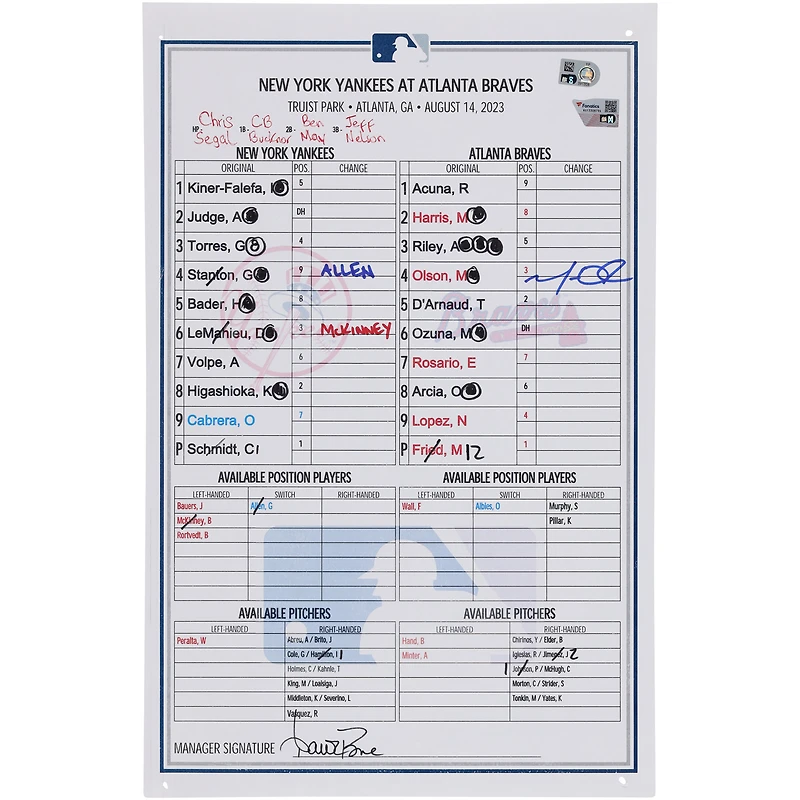 NEW YORK YANKEES AT ATLANTA BRAVES
TRUIST PARK • ATLANTA, GA • AUGUST 14, 2023
HP- Chris Segal 1B- CB Bucknor 2B- Ben May 3B- Jeff Nelson
NEW YORK YANKEES
ORIGINAL POS. CHANGE
1 Kiner-Falefa, 5
2 Judge, A DH
3 Torres, G 8 4
4 Stanton, G 9 ALLEN
5 Bader, H 8
6 LeMahieu, D 3 McKINNEY
7 Volpe, A 6
8 Higashioka, K 2
9 Cabrera, O 7
P Schmidt, C 1 1
ATLANTA BRAVES
ORIGINAL POS. CHANGE
1 Acuna, R 9
2 Harris, M 8
3 Riley, A 5
4 Olson, M 3
5 D'Arnaud, T 2
6 Ozuna, M DH
7 Rosario, E 7
8 Arcia, O 6
9 Lopez, N 4
P Fried, M 12 1
AVAILABLE POSITION PLAYERS
LEFT-HANDED SWITCH RIGHT-HANDED
Bauers, J Allen, G
McKinney, B
Rortvedt, B
AVAILABLE POSITION PLAYERS
LEFT-HANDED SWITCH RIGHT-HANDED
Wall, F Albies, O Murphy, S
Pillar, K
AVAILABLE PITCHERS
LEFT-HANDED RIGHT-HANDED
Peralta, W Abreu, A / Brito, J
Cole, G / Hamilton, I 1
Holmes, C / Kahnle, T
King, M / Loaisiga, J
Middleton, K / Severino, L
Vasquez, R
AVAILABLE PITCHERS
LEFT-HANDED RIGHT-HANDED
Hand, B Chirinos, Y / Elder, B
Minter, A Iglesias, R / Jimenez, J 2
1 Johnson, P / McHugh, C
Morton, C / Strider, S
Tonkin, M / Yates, K
MANAGER SIGNATURE
Fanatics